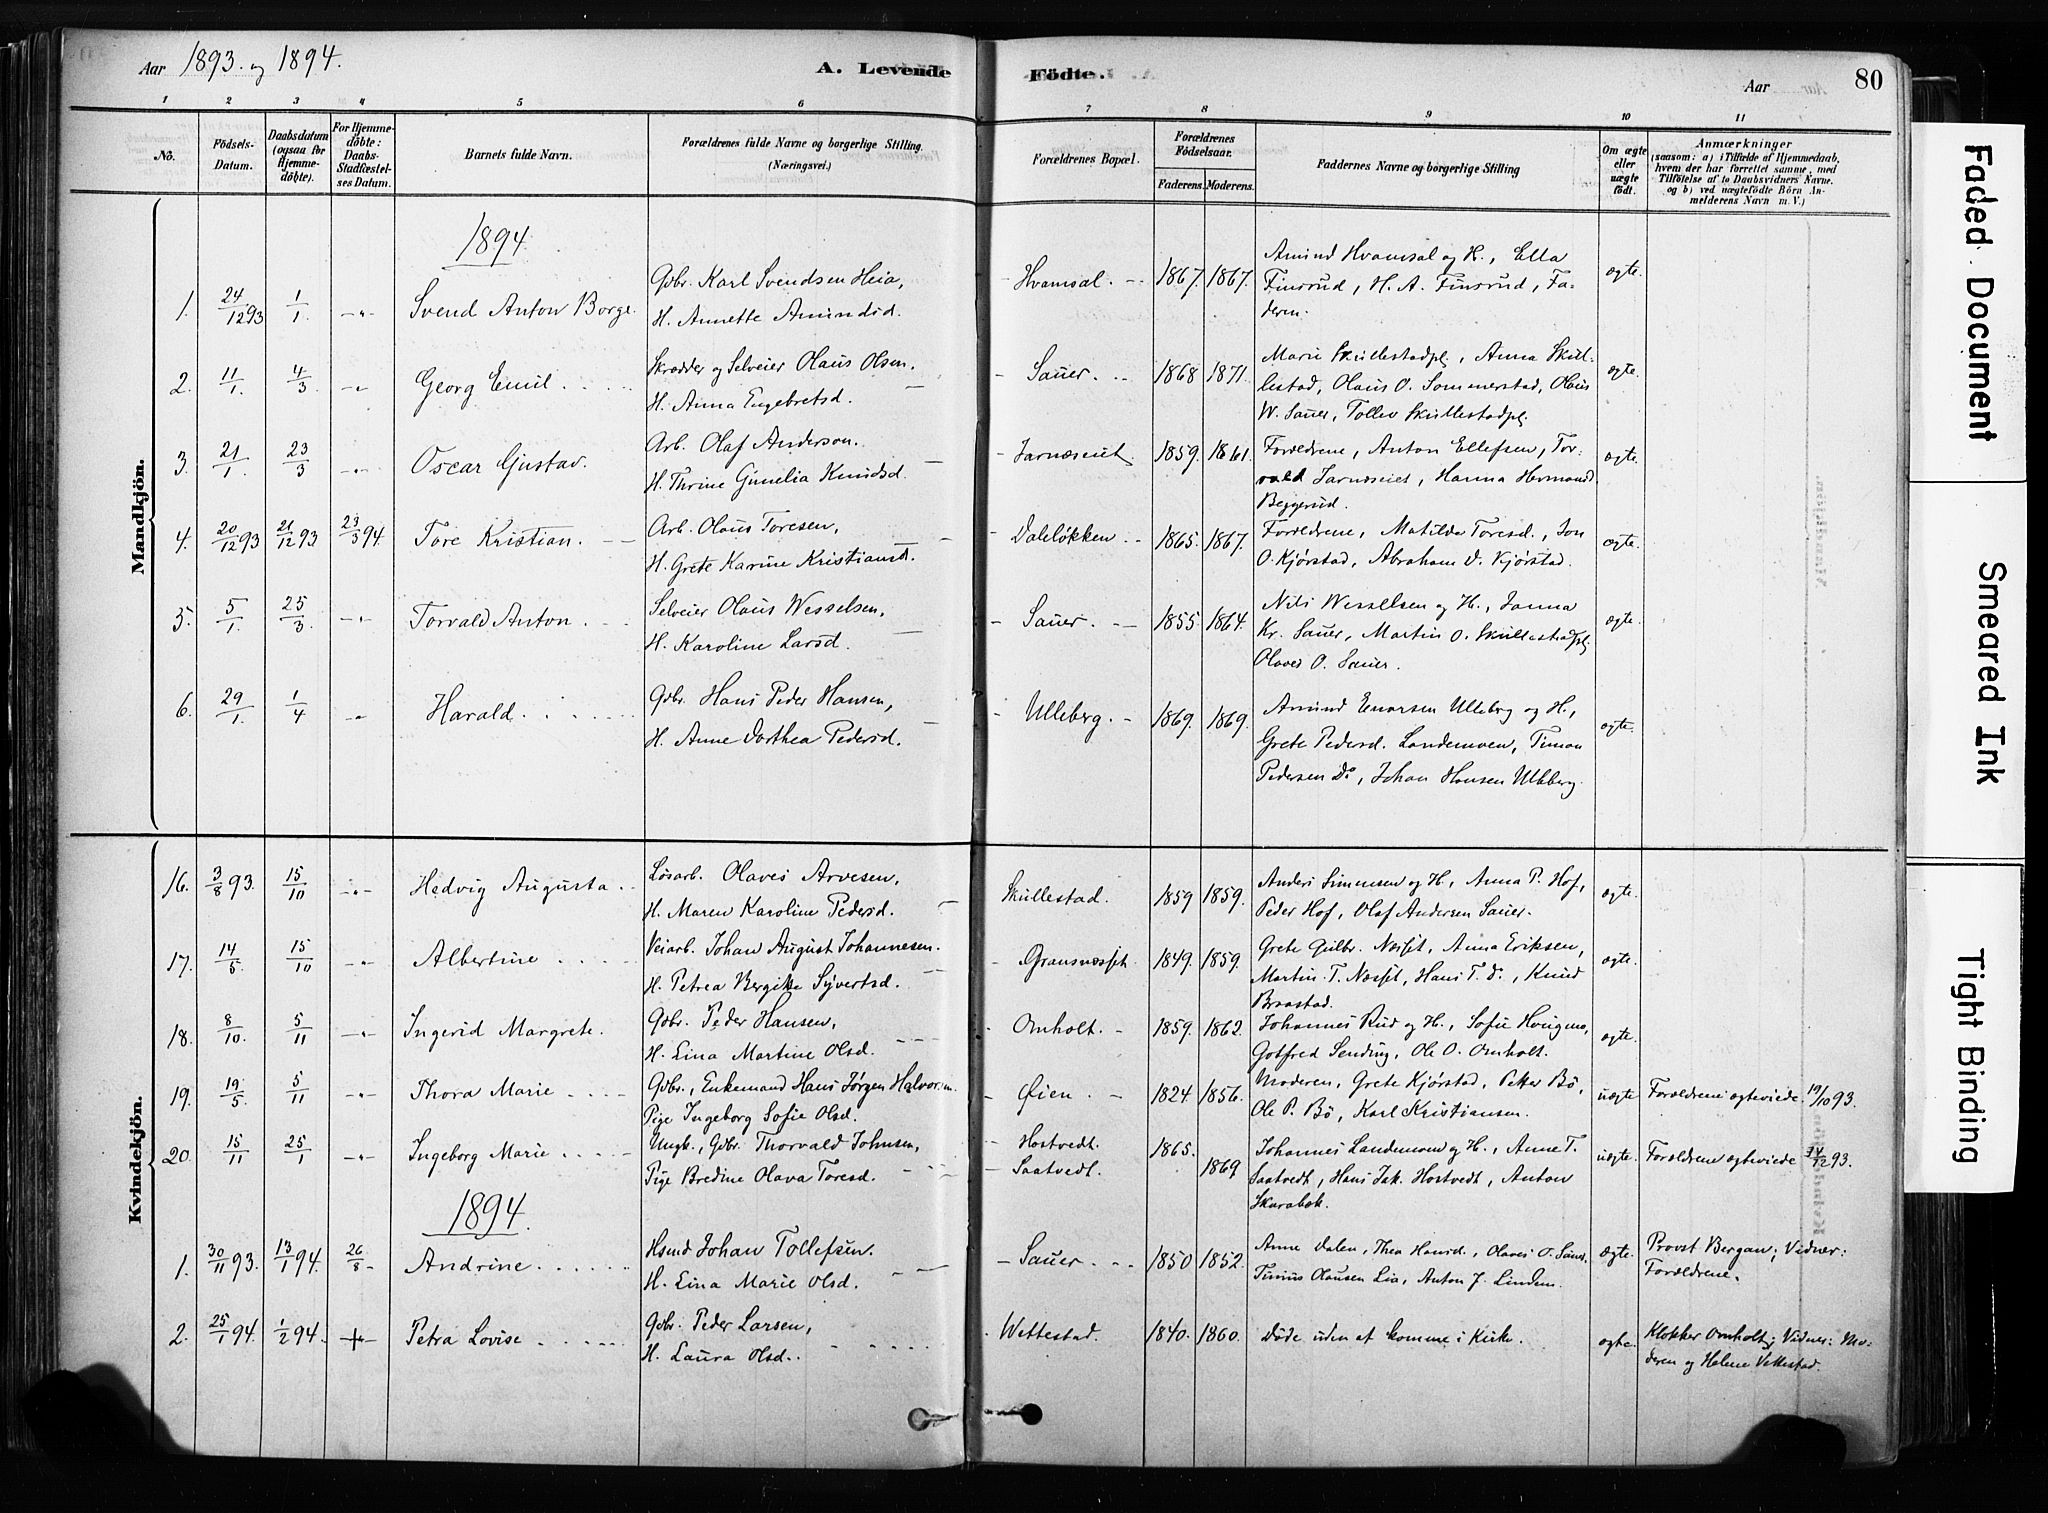 Aar 1893. og 1894.
A. Levende
Födte.
Aar
80
1 2 3 4 5 6 7 8 9 10 11
No.
Födsels-
Datum.
Daabsdatum
(ogsaa for
Hjemme-
döbte).
For Hjemme-
döbte:
Daabs-
Stadfæstel-
ses Datum.
Barnets fulde Navn.
Forældrenes fulde Navne og borgerlige Stilling.
(Næringsvei.)
Forældrenes Bopæl.
Forældrenes
Födselsaar.
Faderens. Moderens.
Faddernes Navne og borgerlige Stilling
Om ægte
eller
uægte
födt.
Anmærkninger
(saasom: a) i Tilfælde af Hjemmedaab,
hvem der har forrettet samme, med
Tilföielse af to Daabsvidners Navne,
og b) ved uægtefödte Börn An-
melderens Navn m. V.)
Mandkjön.
1894
1. 24/12 93 1/1 -"- Svend Anton Borge.
Gdbr. Karl Svendsen Heia,
H. Annette Amundsd.
- Hvamsal. - 1867. 1867.
Amund Hvamsal og H., Ella
Finsrud, H. A. Finsrud, Fa-
deren.
ægte.
2. 11/1. 4/3 -"- Georg Emil
Skrædder og Selveier Olaus Olsen.
H. Anna Engebretsd.
- Sauer. - 1868 1871.
Marie Skullestadpl, Anna Skul-
lestad, Olaus O. Sommerstad, Olaus
W. Sauer, Tollev Skullestadpl.
ægte.
3. 21/1 23/3 -"- Oscar Gustav.
Arb. Olaf Anderson.
H. Thrine Gunelia Knudsd.
- Jarnæseiet 1859. 1861.
Forældrene, Anton Ellefsen, Tor-
vald Jarnæseiet, Hanna Hermansd
Beggerud.
ægte.
4. 20/12 93 21/12 93 23/3 94. Tore Kristian.
Arb. Olaus Toresen,
H. Grete Karine Kristiansd.
Daleløkken. - 1865. 1867.
Forældrene, Matilde Toresd., Jon
O. Kjørstad, Abraham D. Kjørstad.
ægte.
5. 5/1. 25/3. -"- Torvald Anton.
Selveier Olaus Wesselsen,
H. Karoline Larsd.
- Sauer. - 1855. 1864.
Nils Wesselsen og H., Janna
Kr. Sauer, Martin O. Skullestadpl.
Olaves O. Sauer.
ægte.
6. 29/1. 1/4 -"- Harald.
Gdbr. Hans Peder Hansen,
H. Anne Dorthea Pedersd.
- Ulleberg. - 1869. 1869.
Amund Enersen Ulleberg og H.,
Grete Pedersd. Landemoen, Timan
Pedersen Do, Johan Hansen Ulleberg.
ægte.
Kvindekjön.
16. 3/8 93. 15/10 -"- Hedvig Augusta.
Løsarb. Olaves Arvesen,
H. Maren Karoline Pedersd.
Skullestad. 1859 1859.
Anders Simensen og H., Anna P. Hof,
Peder Hof, Olaf Andersen Sauer.
ægte.
17. 14/5. 15/10 -"- Albertine
Veiarb. Johan August Johannesen.
H. Petrea Bergitte Syvertsd.
- Gransnæsset 1849. 1859.
Grete Gulbr. Næsset, Anna Eriksen,
Martin T. Næsset, Hans T. Do., Knud
Braastad.
ægte.
18. 8/10. 5/11 -"- Ingerid Margrete.
Gdbr. Peder Hansen,
H. Lina Martine Olsd.
- Omholt. - 1859. 1862.
Johannes Rud og H., Sofie Haugmo,
Gotfred Sending, Ole O. Omholt.
ægte.
19. 19/5. 5/11 -"- Thora Marie
Gdbr., Enkemand Hans Jørgen Halvorsen.
Pige Ingeborg Sofie Olsd.
- Øien. - 1824. 1856.
Moderen, Grete Kjørstad, Petter Bö,
Ole P. Bö, Karl Kristiansen.
uægte Forældrene ægteviede 19/10 93.
20. 15/11 25/1 -"- Ingeborg Marie
Ungk., Gdbr. Thorvald Johnsen,
Pige Bredine Olava Toresd.
- Hostvedt.
- Saatvedt. 1865. 1869
Johannes Landemoen og H., Anne T.
Saatvedt, Hans Jak. Hostvedt, Anton
Skarabek.
uægte. Forældrene ægteviede 14/12 93.
1894.
1. 30/11 93. 13/1 94. 26/8 - Andrine
Hsmd Johan Tollefsen.
H. Lina Marie Olsd.
- Sauer. - 1850 1852.
Anne Dalen, Thea Hansd., Olaves O. Sauer,
Tinius Olausen Lia, Anton J. Lindem.
Ægte. Provst Bergan; Vidner:
Forældrene.
2. 25/1 94. 1/2 94. Petra Lovise
Gdbr. Peder Larsen,
H. Laura Olsd.
- Wettestad. 1840. 1860.
Døde uden at komme i Kirke.
ægte. Klokker Omholt; Vidner: Mo-
deren og Helene Vettestad.
Faded Document
Smeared Ink
Tight Binding